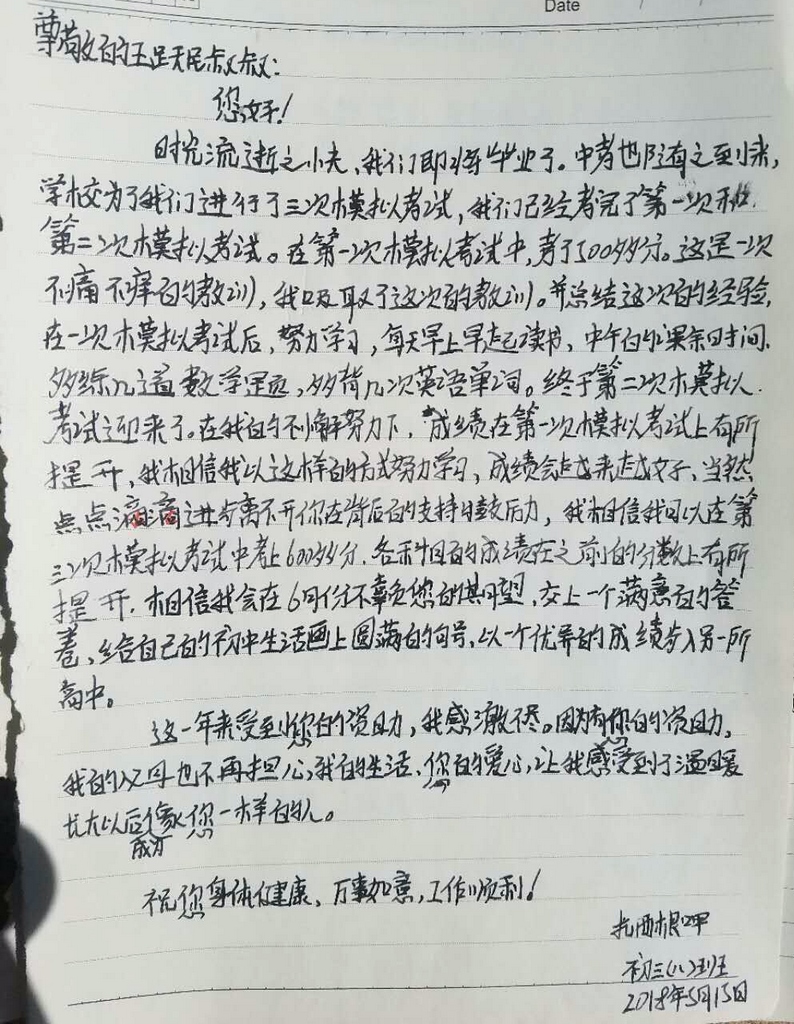 Date
尊敬的王是民叔叔:
您好!
时光流逝之快,我们即将毕业了。中考也随之到来,
学校为了我们进行了三次模拟考试,我们已经考完了第一次和
第二次模拟考试。在第一次模拟考试中,考了500多分。这是一次
不痛不痒的教训,我吸取了这次的教训。并总结这次的经验,
在一次模拟考试后,努力学习,每天早上早起读书,中午的课余时间,
多练几道数学题,多背几次英语单词。终于第二次模拟
考试迎来了。在我的不懈努力下,成绩在第一次模拟考试上有所
提升,我相信我以这样的方式努力学习,成绩会越来越好、当然
点点滴滴进步离不开你在背后的支持与鼓励,我相信我可以在第
三次模拟考试中考上600多分,各科目的成绩在之前的分数上有所
提升.相信我会在6月份不辜负您的期望,交上一个满意的答
卷,给自己的初中生活画上圆满的句号,以一个优异的成绩步入另一所
高中。
这一年来受到您的资助,我感激不尽。因为有你的资助,
我的父母也不再担心我的生活、您的爱心,让我感受到了温暖
长大以后成为像您一样的人。
祝您身体健康,万事如意,工作顺利!
扎西根呷
初三(八)班
2018年5月15日